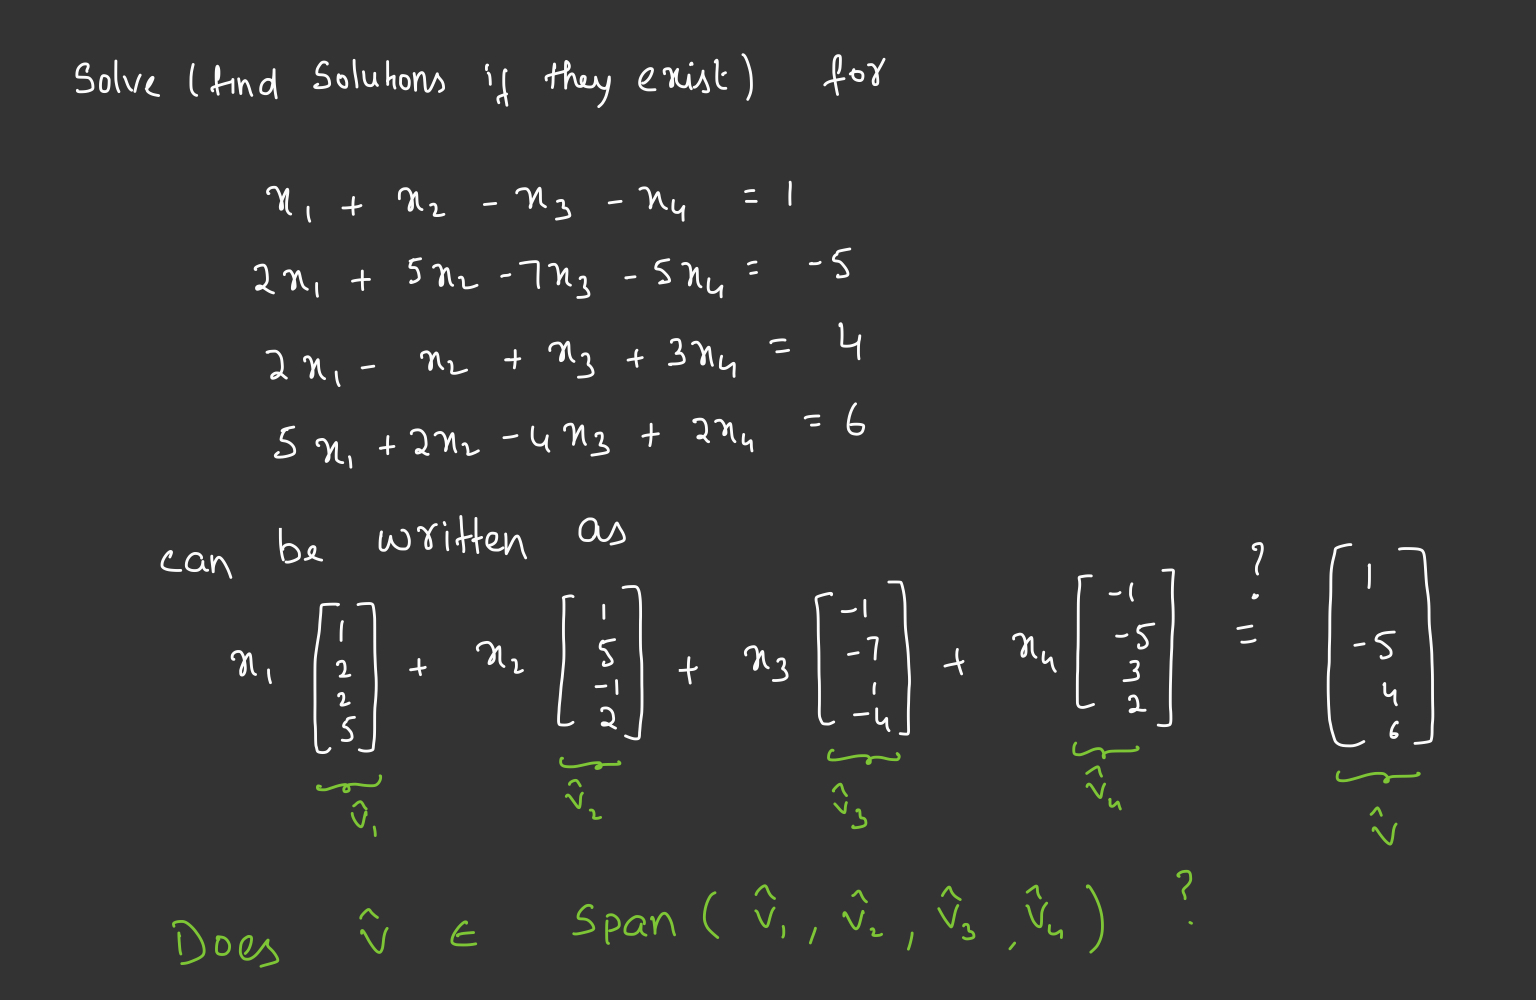 Solve (find solutions if they exist) for
x₁ + x₂ - x₃ - x₄ = 1
2x₁ + 5x₂ - 7x₃ - 5x₄ = -5
2x₁ - x₂ + x₃ + 3x₄ = 4
5x₁ + 2x₂ - 4x₃ + 2x₄ = 6
can be written as
x₁ [1 2 2 5] + x₂ [1 5 -1 2] + x₃ [-1 -7 1 -4] + x₄ [-1 -5 3 2] =? [1 -5 4 6]
v̂₁ v̂₂ v̂₃ v̂₄ v̂
Does v̂ ∈ Span (v̂₁, v̂₂, v̂₃, v̂₄) ?